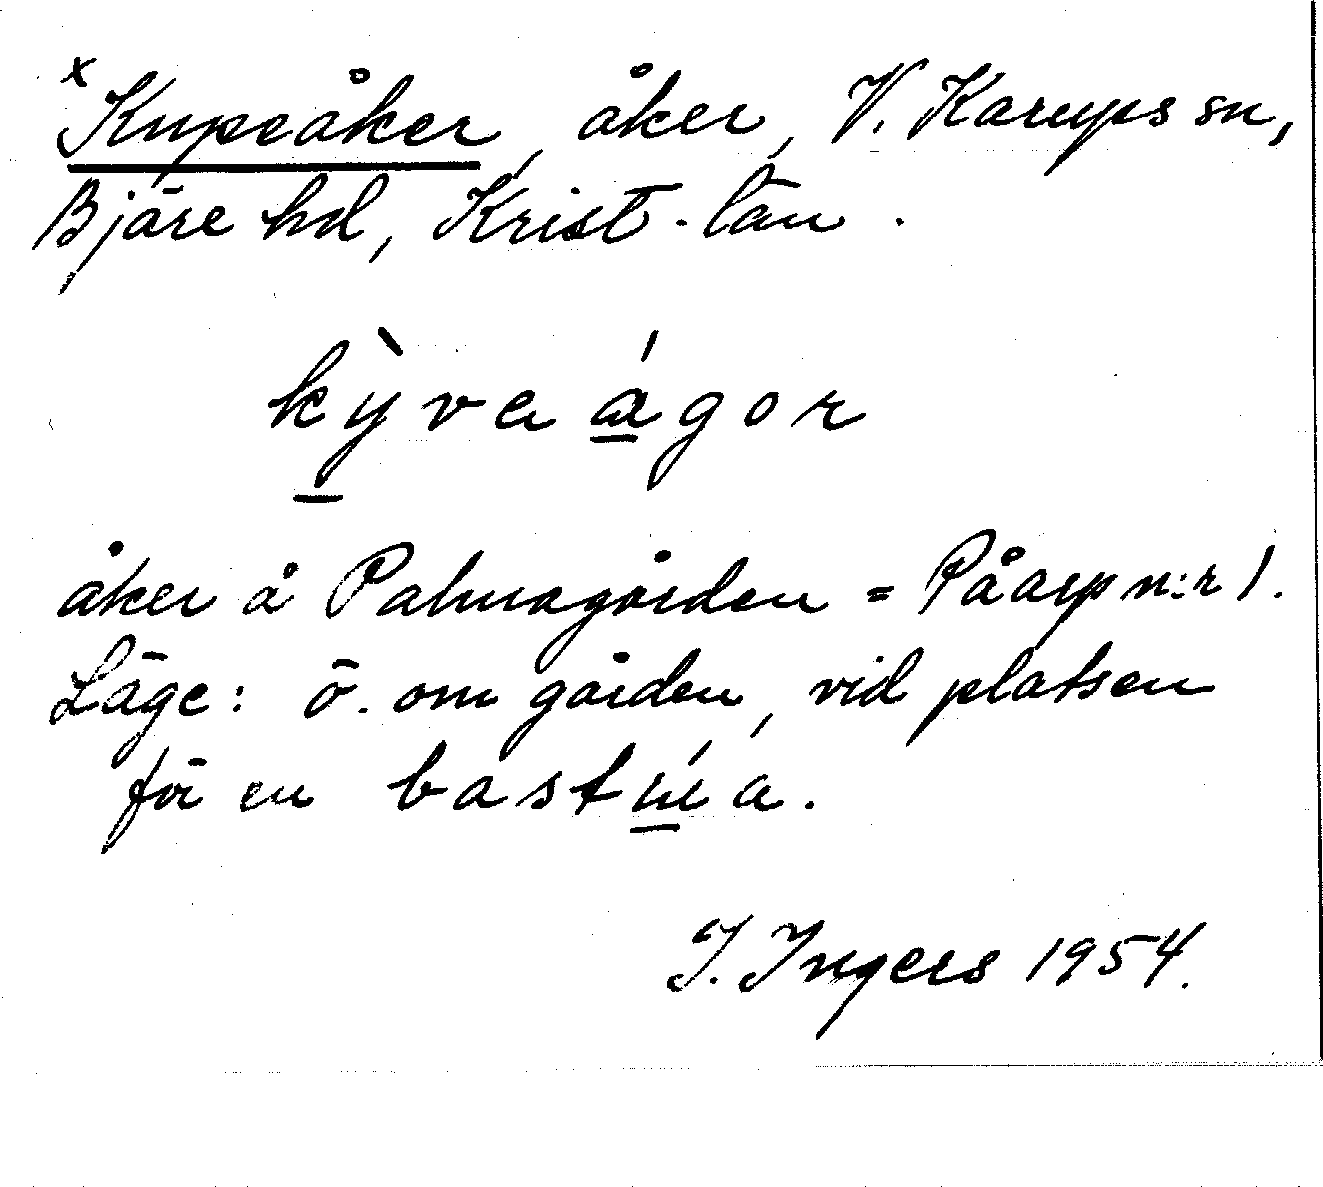 x Kupeåker, åker, V. Karups sn,
Bjäre hd, Krist. län.
kỳva ágor
åker å Palmagården = Påarp n:r 1.
Läge: ö. om gården, vid platsen
för en bastúa.
I. Ingers 1954.